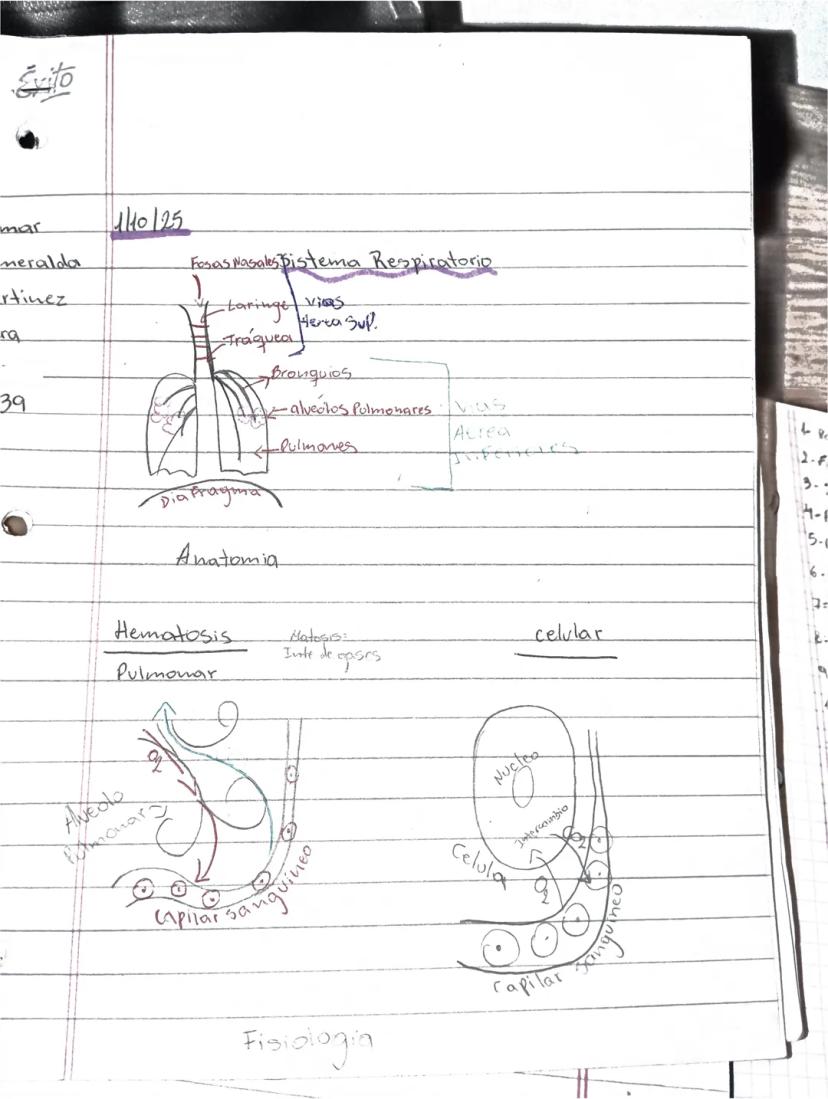 Éxito
mar
meralda
rtinez
ra
39
1/10/25
Sistema Respiratorio
Fosas Nasales
Laringe
Tráquea
Vias
Aerea Sup.
Bronquios
alveólos Pulmonares
Pulmones
Vias
Aerea
Inferiores
Diafragma
Anatomia
Hematosis
Pulmonar
Matosis:
Inte de gases
celular
O2
Alveolo
Pulmonar
Capilar sanguineo
Nucleo
Intercambio
Celula
O2
Capilar sanguineo
Fisiologia
2.
3.
4.
5.
6.